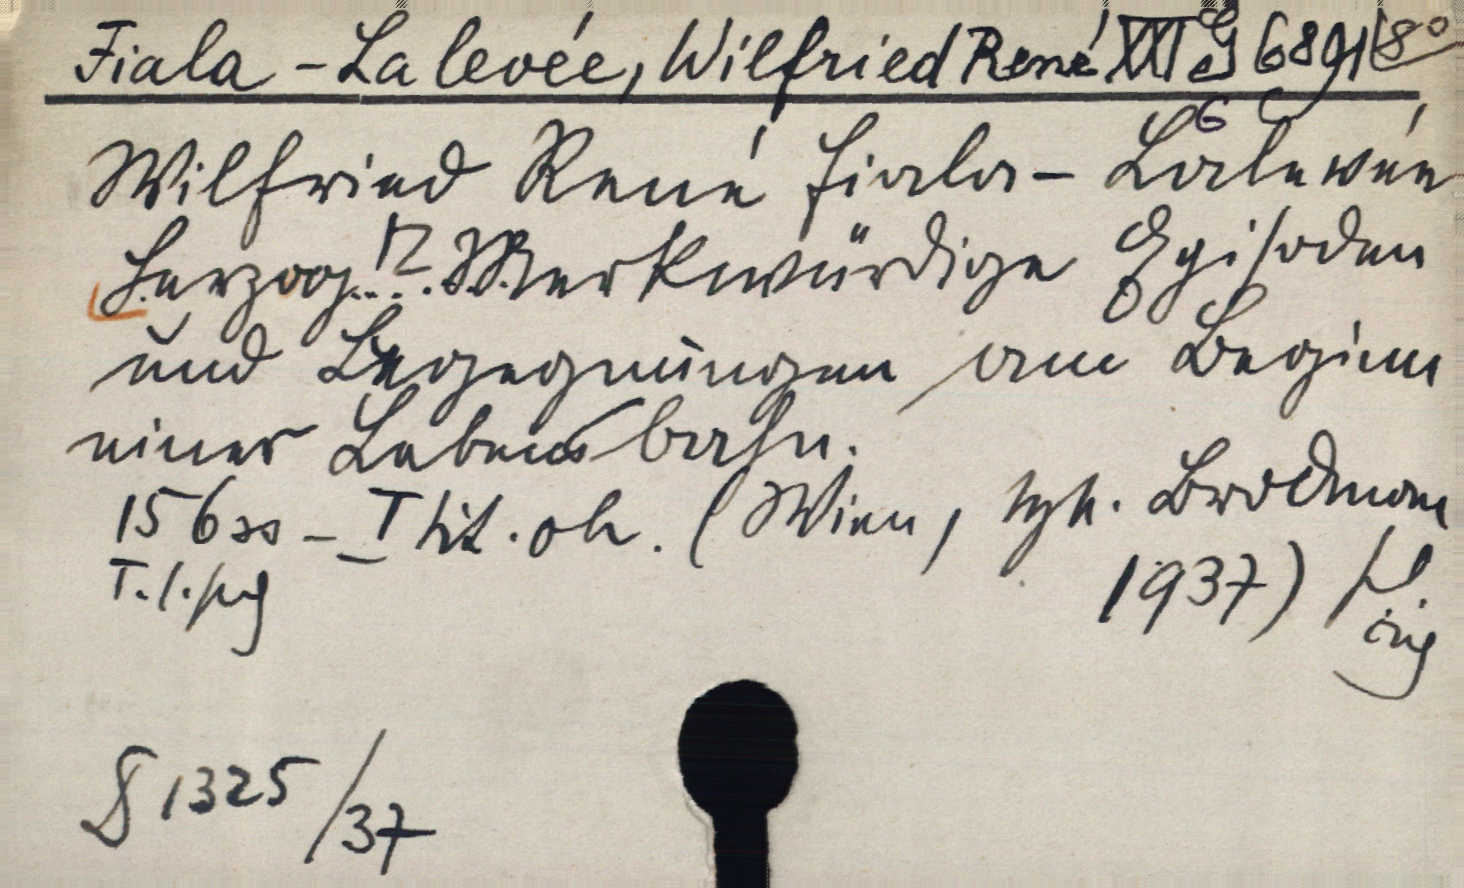 Fiala-Lalevée, Wilfried René XXI G 6891 8°
Wilfried René Fiala-Lalevée
Herzog!? Merkwürdige Episoden
und Begegnungen am Beginn
einer Lebensbahn.
156 ss - 1 tit. ob. (Wien, typ. Brodmann
T. l. 1937)
§ 1325/37